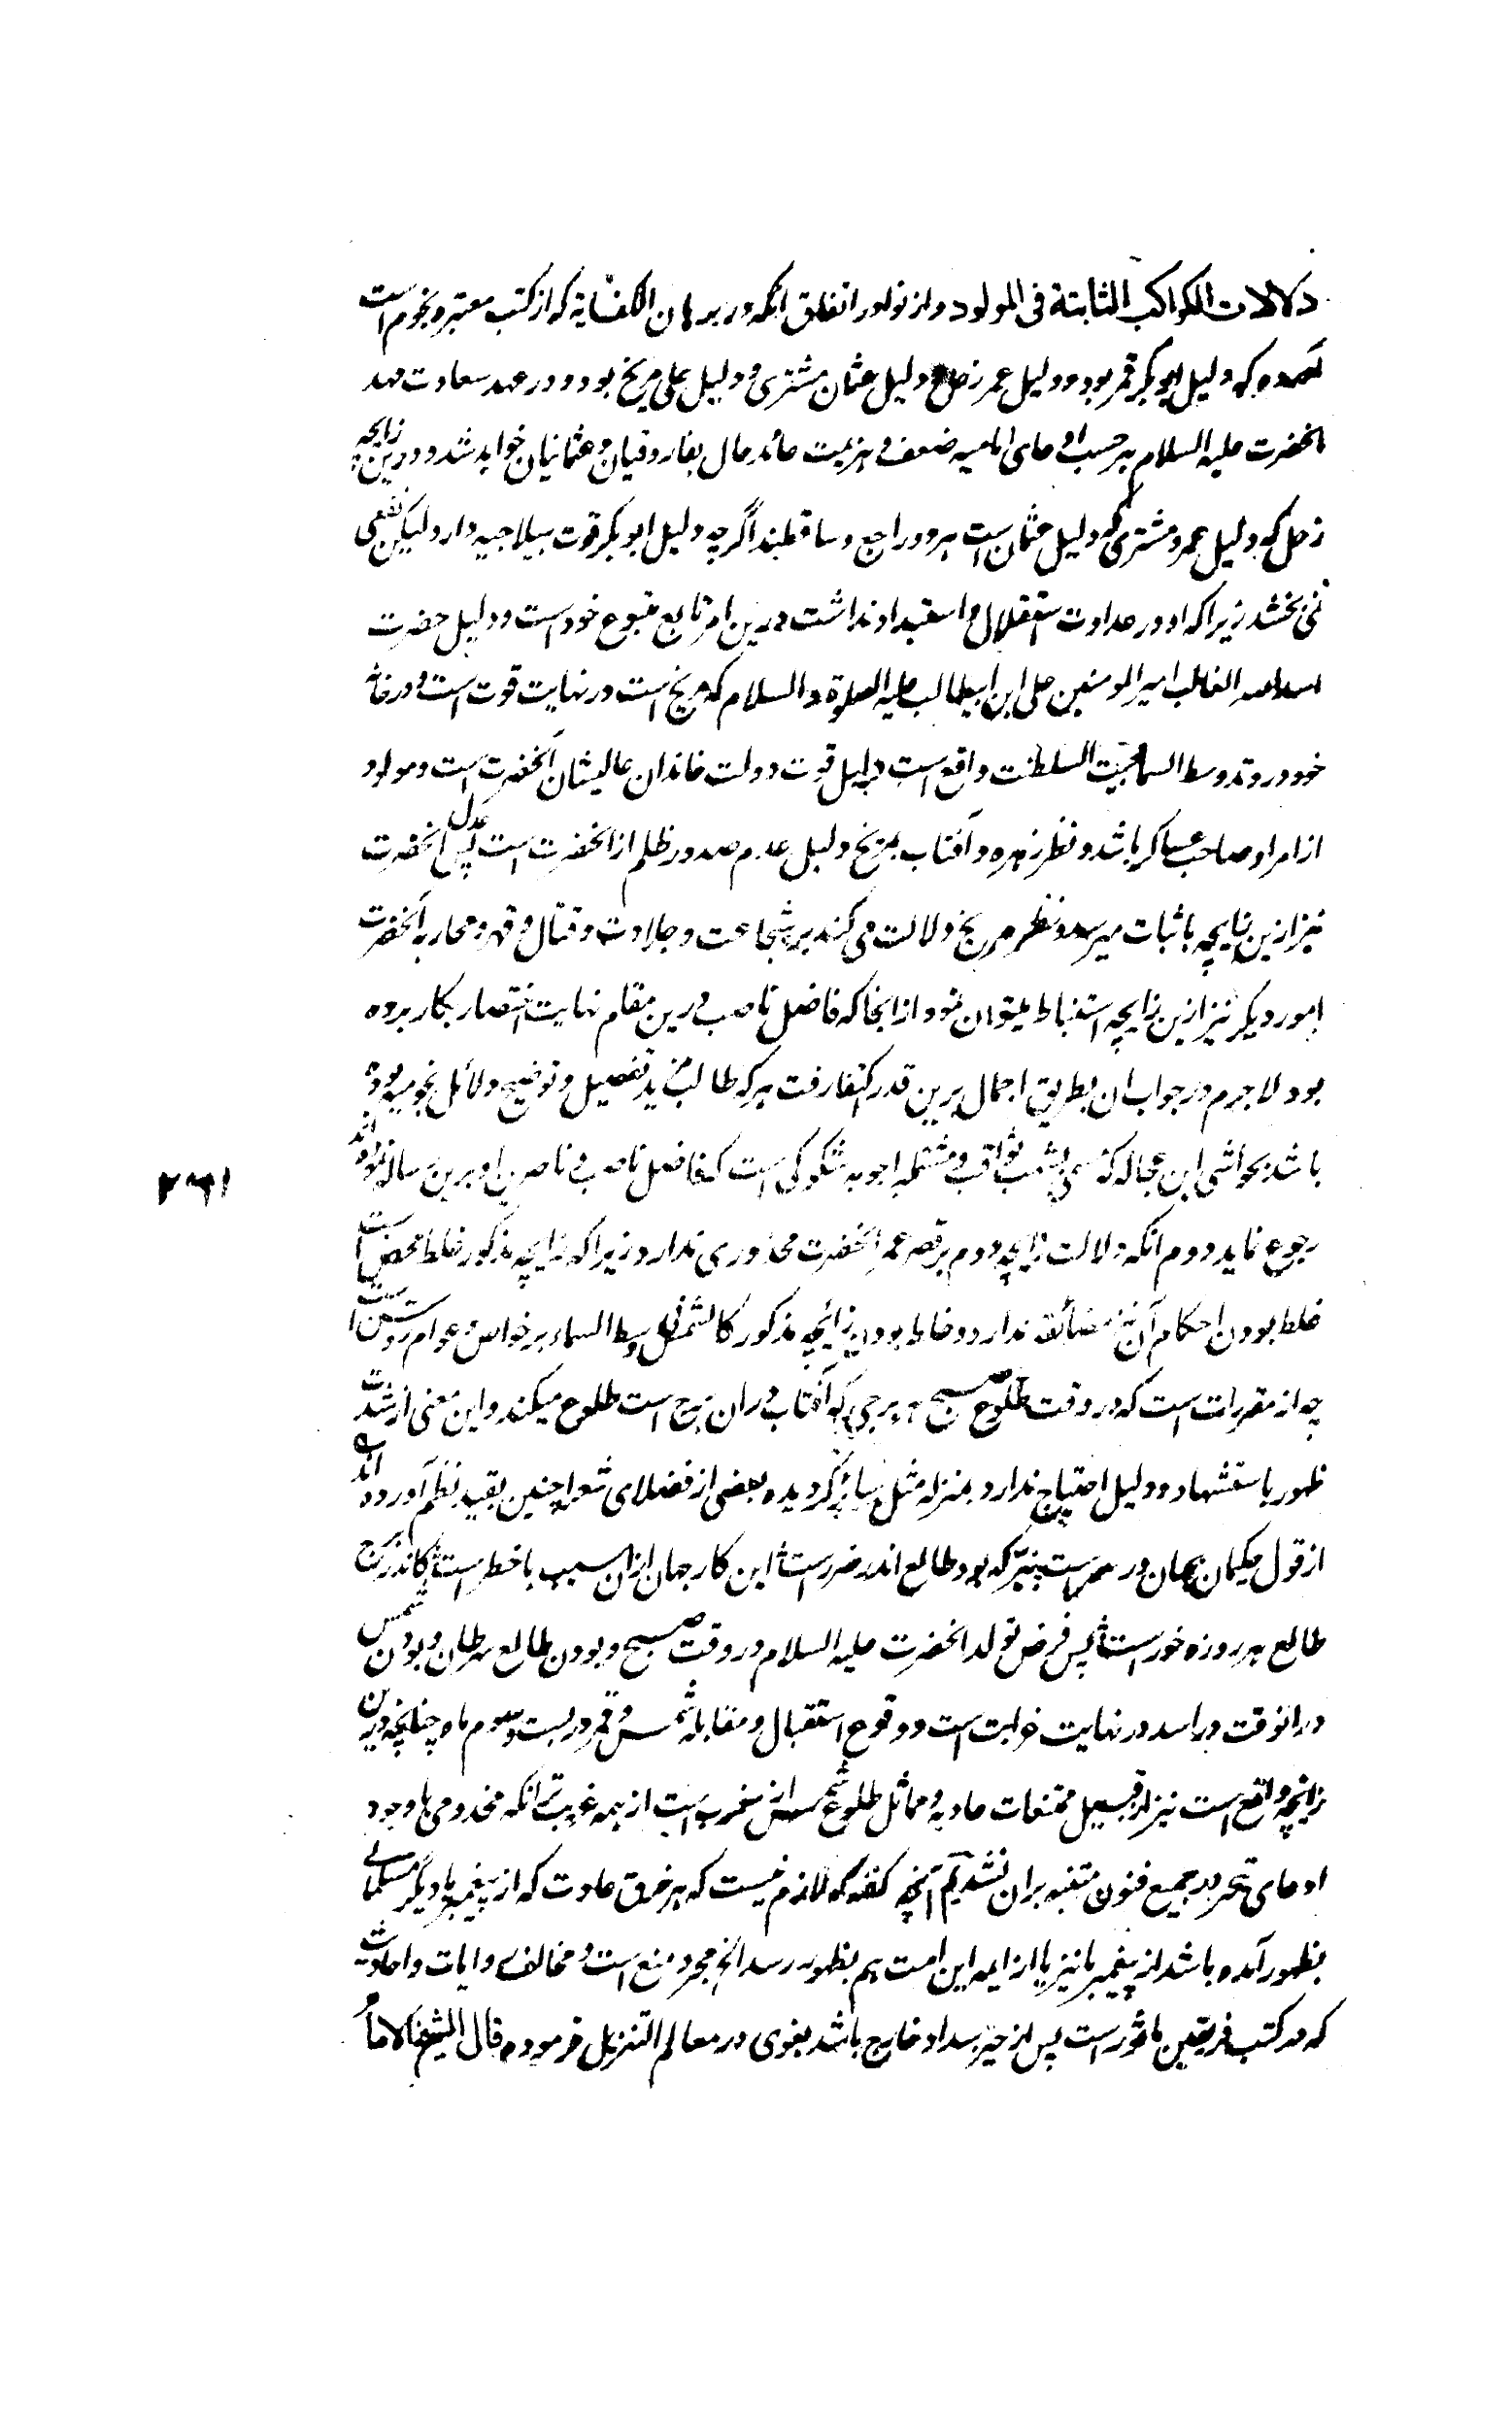 دلالات الکواکب الثابتة فی المولود و از نوادر اتفاق انکه در برهان الکفایة که از کتب معتبره نجوم است
امده که دلیل ابو بکر قمر بود و دلیل عمر زحل و دلیل عثمان مشتری و دلیل علی مریخ بود و در عهد سعادت مهد
انحضرت علیه السلام بر حسب ادعای امامیه ضعف و هزیمت عائد حال بفاروقیان و عثمانیان خواهد شد و درین زایجه
زحل که دلیل عمر و مشتری که دلیل عثمان است هر دو راجع و ساقطند اگرچه دلیل ابو بکر قوت بیلاجیه دارد لیکن نفعی
نمی بخشد زیرا که او در عداوت استقلال و استبداد نداشت درین امر تابع متبوع خود است و دلیل حضرت
اسد الله الغالب امیر المومنین علی ابن ابیطالب علیه الصلوة و السلام که مریخ است در نهایت قوت است و در خانه
خود در وتد وسط السما بیت السلطنت واقع است دلیل قوت دولت خاندان عالیشان آنحضرت است و مولود
از امرا و صاحب عساکر باشد و نظر زهره و آفتاب بمریخ دلیل عدم صدور ظلم از انحضرت است پس عدل انحضرت
نیز ازین زایچه باثبات میرسد و نظر مریخ دلالت می کند بر شجاعت و جلادت و قتال و قهر و محاربه آنحضرت
امور دیگر نیز ازین زایچه استنباط میتوان نمود از انجا که فاضل ناصب درین مقام نهایت اختصار بکار برده
بود لاجرم در جواب ان بطریق اجمال برین قدر اکتفا رفت هر که طالب مزید تفصیل و توضیح دلائل نجومیه بوده
باشد بحواشی این عجاله که مسمی بشهب ثواقب و مشتمل بر اجوبه شکوکی است که فاضل ناصب و ناصرین او برین رساله نموده اند
رجوع نماید دوم انکه دلالت زایچه دوم بر قصر عمر انحضرت محذوری ندارد زیرا که زایچه مذکور غلط محض است
غلط بودن احکام آن نیز مضائقه ندارد و غلط بودن زائچه مذکور کالشمس فی وسط السماء بر خواص و عوام روشن است
چه از مقررات است که در وقت طلوع صبح برجی که آفتاب در ان برج است طلوع میکند و این معنی از شدت
ظهور باستشهاد و دلیل احتیاج ندارد بمنزله مثل سایر گردیده بعضی از فضلای شعرا چنین بقید نظم آورده اند
از قول حکیمان جهان در سمر است نیر که بود طالع اندر ضرر است این کار جهان ازان سبب با خطر است کاندر برج
طالع هر روزه خور است پس فرض تولد انحضرت علیه السلام در وقت صبح و بودن طالع سرطان و بودن شمس
در انوقت در اسد در نهایت غرابت است و وقوع استقبال و مقابله شمس و قمر در بست و سوم ماه چنانچه درین
زایچه واقع است نیز از قبیل ممتنعات عادیه و مماثل طلوع شمس از مغرب است از همه غریب تر انکه مخدومی با وجود
ادعای تبحر در جمیع فنون متنبه بران نشدیم آنچه گفته که لازم نیست که هر خرق عادت که از پیغمبر یا دیگر مسلمانی
بظهور آمده باشد از پیغمبر ما نیز یا از ایمه این امت هم بظهور رسد الخ مجرد منع است و مخالف روایات و احادیث
که در کتب فریقین ماثور است پس از حیز سداد خارج باشد بغوی در معالم التنزیل فرموده قال الشیخ الامام
۲۶۱